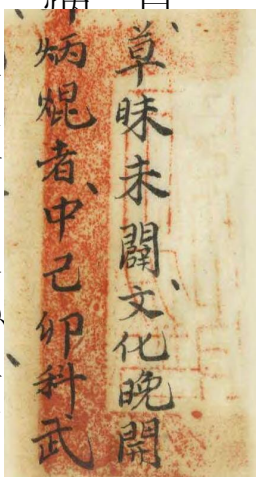 草昧未闢文化晚開
炳焜者中己卯科武